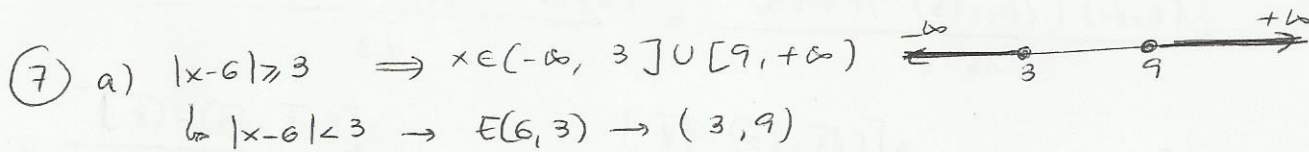 ⑦ a) |x-6|⩾3 ⟹ x∈(-∞, 3]∪[9,+∞) -∞ 3 9 +∞
↳ |x-6|<3 → E(6,3) → (3,9)